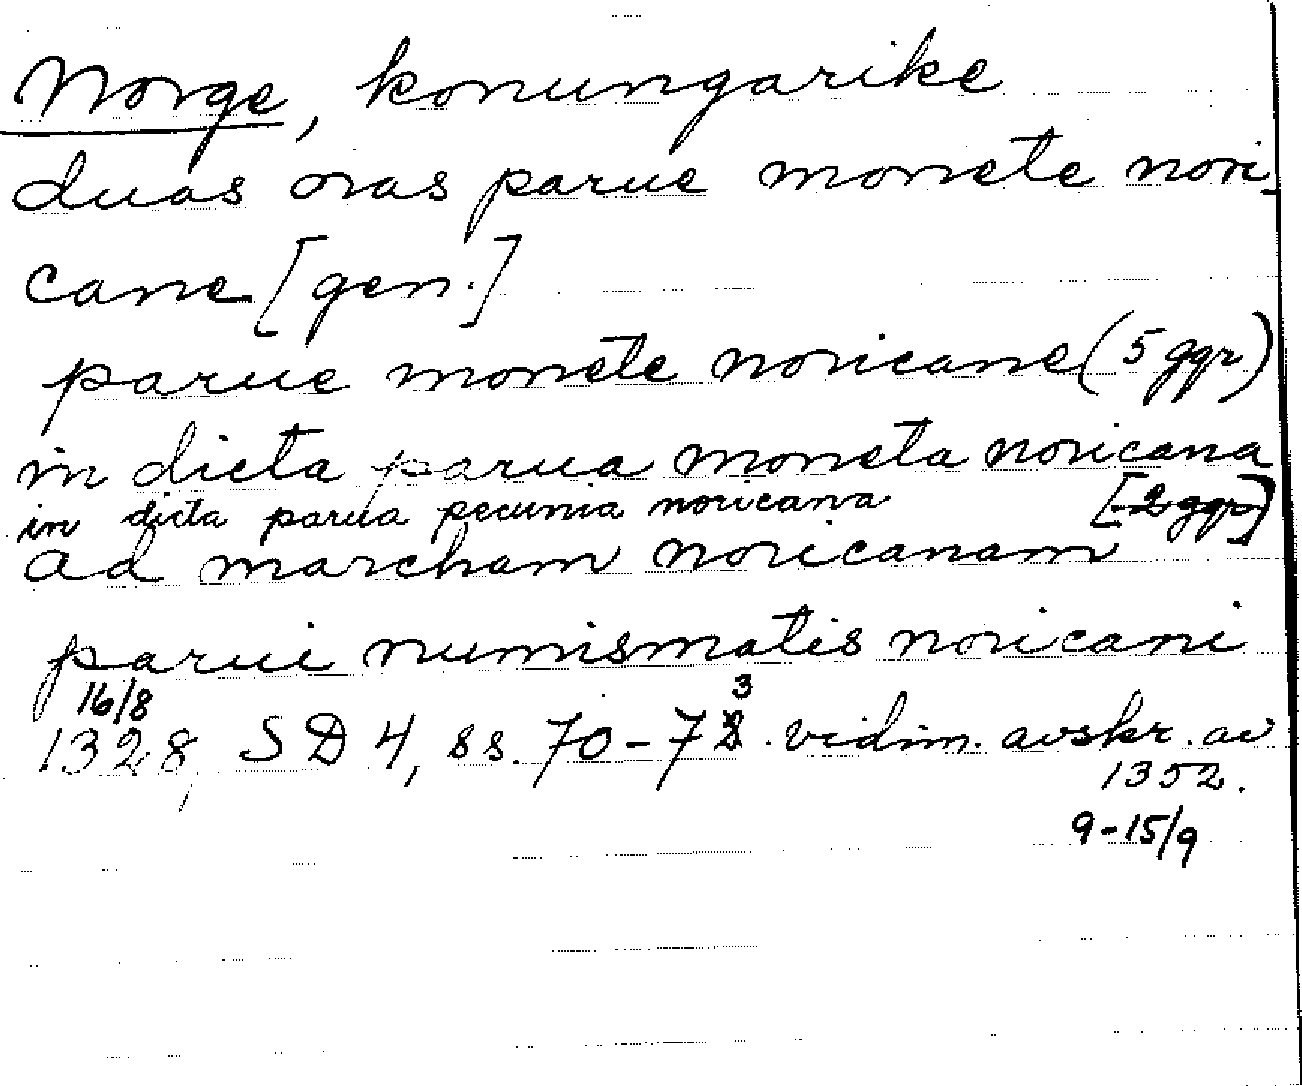 Norge, konungarike
duas oras parue monete nori-
cane [gen.]
parue monete noricane (5 ggr)
in dicta parua moneta noricana
[2 ggr]
in dicta parua pecunia noricana
ad marcham noricanam
parui numismatis noricani
16/8
1328, SD 4, ss. 70-73 vidim. avskr. av
1352.
9-15/9